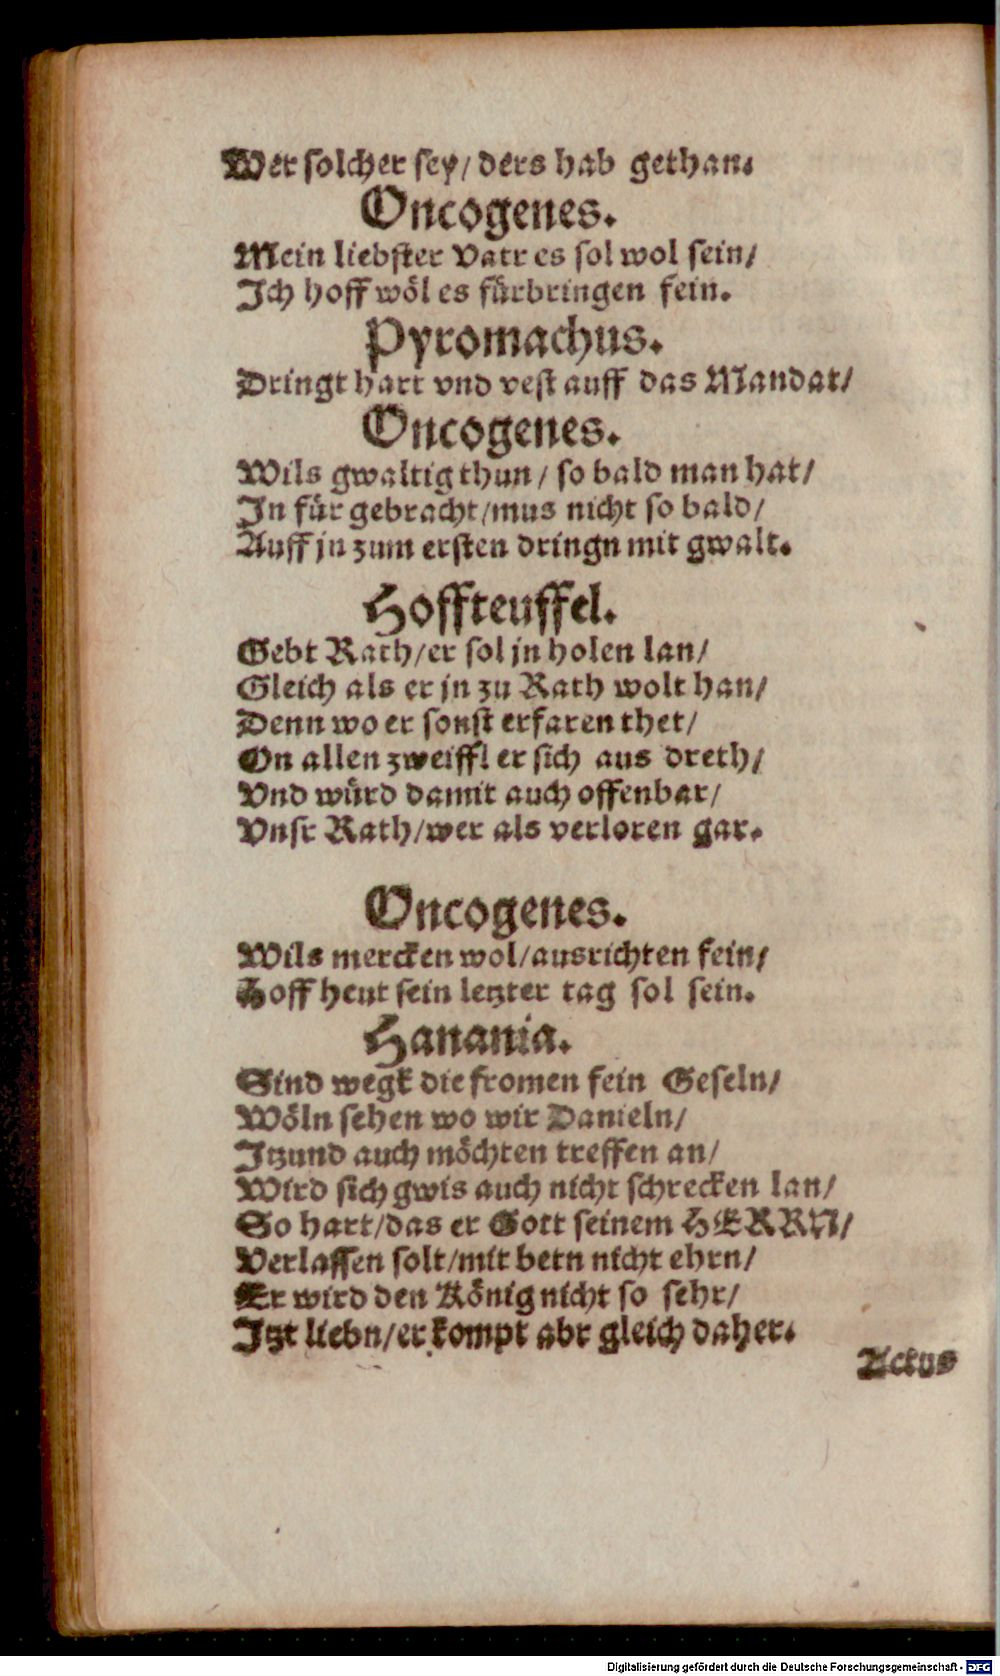 Wer solcher sey/ ders hab gethan.
Oncogenes.
Mein liebster Vatr es sol wol sein/
Ich hoff wöl es fürbringen fein.
Pyromachus.
Dringt hart vnd vest auff das Mandat/
Oncogenes.
Wils gwaltig thun/ so bald man hat/
In für gebracht/mus nicht so bald/
Auff jn zum ersten dringn mit gwalt.
Hoffteuffel.
Gebt Rath/er sol jn holen lan/
Gleich als er jn zu Rath wolt han/
Denn wo er sonst erfaren thet/
On allen zweiffl er sich aus dreth/
Vnd würd damit auch offenbar/
Vnsr Rath/wer als verloren gar.
Oncogenes.
Wils mercken wol/ausrichten fein/
Hoff heut sein letzter tag sol sein.
Hanania.
Sind wegk die fromen fein Geseln/
Wöln sehen wo wir Danieln/
Itzund auch möchten treffen an/
Wird sich gwis auch nicht schrecken lan/
So hart/das er Gott seinem HERRN/
Verlassen solt/mit betn nicht ehrn/
Er wird den König nicht so sehr/
Itzt liebn/er kompt abr gleich daher.
Actus
Digitalisierung gefördert durch die Deutsche Forschungsgemeinschaft - DFG